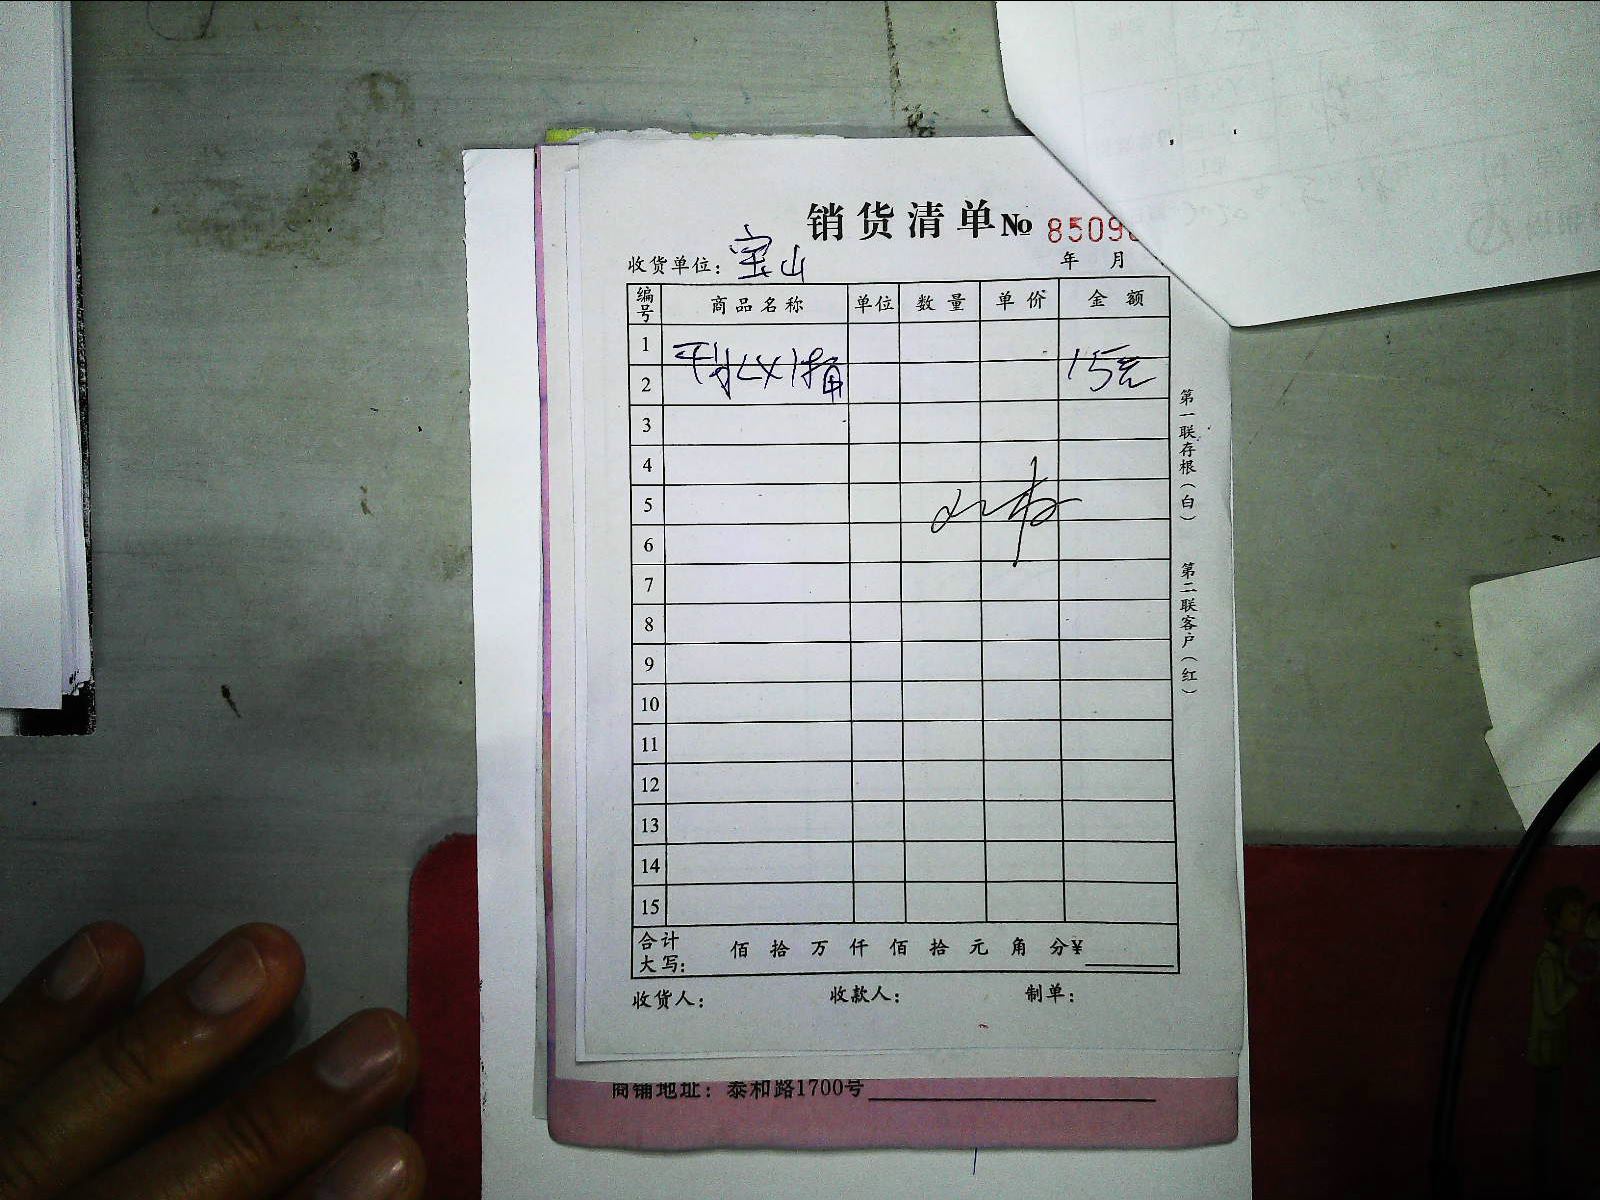 销货清单 № 8509
收货单位：宝山
年 月
编号 商品名称 单位 数量 单价 金额
1
2 15元
3
4
5
6
7
8
9
10
11
12
13
14
15
合计大写： 佰 拾 万 仟 佰 拾 元 角 分 ¥
收货人： 收款人： 制单：
第一联存根（白） 第二联客户（红）
商铺地址：泰和路1700号